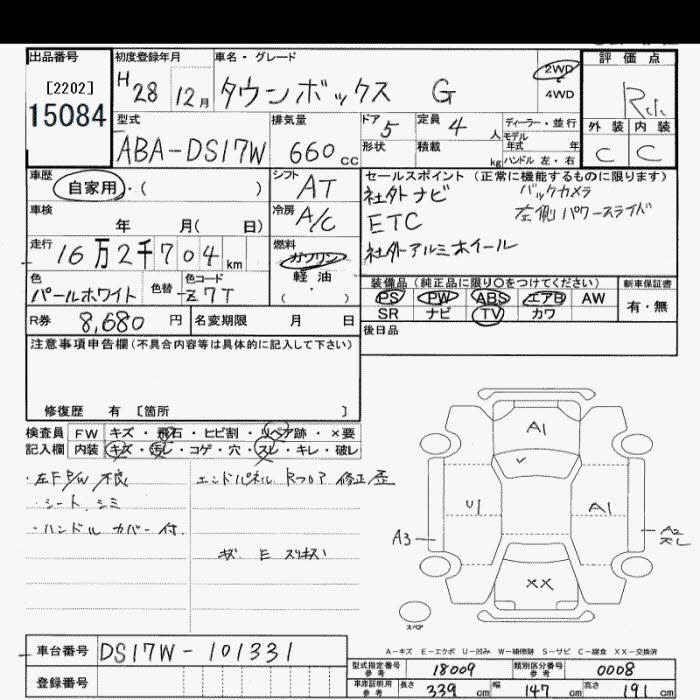 出品番号
[2202]
15084
初度登録年月
H 28年 12月
車名・グレード
タウンボックス G
2WD
4WD
評価点
R
外装 内装
C C
型式
ABA-DS17W
排気量
660 cc
ドア 5
形状
定員 4 人
積載 kg
ディーラー・並行
モデル
年式 年
ハンドル 左・右
車歴
自家用・( )
シフト
AT
車検
年 月( 日)
冷房
A/C
走行
16万2千704 km
燃料
ガソリン
軽油
( ・ )
色
パールホワイト
色替
色コード
Z7T
R券 8,680 円
名変期限 月 日
セールスポイント (正常に機能するものに限ります)
社外ナビ バックカメラ
ETC 左側パワースライド
社外アルミホイール
装備品 (純正品に限り○をつけてください)
PS PW ABS エアB AW
SR ナビ TV カワ
新車保証書
有・無
後日品
注意事項申告欄(不具合内容等は具体的に記入して下さい)
修復歴 有 [箇所 ]
検査員 FW キズ・飛石・ヒビ割・リペア跡・×要
記入欄 内装 キズ・汚レ・コゲ・穴・スレ・キレ・破レ
・左F P/W 不良
・シート シミ
・ハンドル カバー付.
エンドパネル Rフロア 修正歪
A1
U1
A1
A3
A2
XX
スペア
A-キズ E-エクボ U-凹み W-補修跡 S-サビ C-腐食 XX-交換済
車台番号 DS17W-101331
登録番号
型式指定番号 参考 18009
類別区分番号 参考 0008
車庫証明用 参考 長さ 339 cm 幅 147 cm 高さ 191 cm